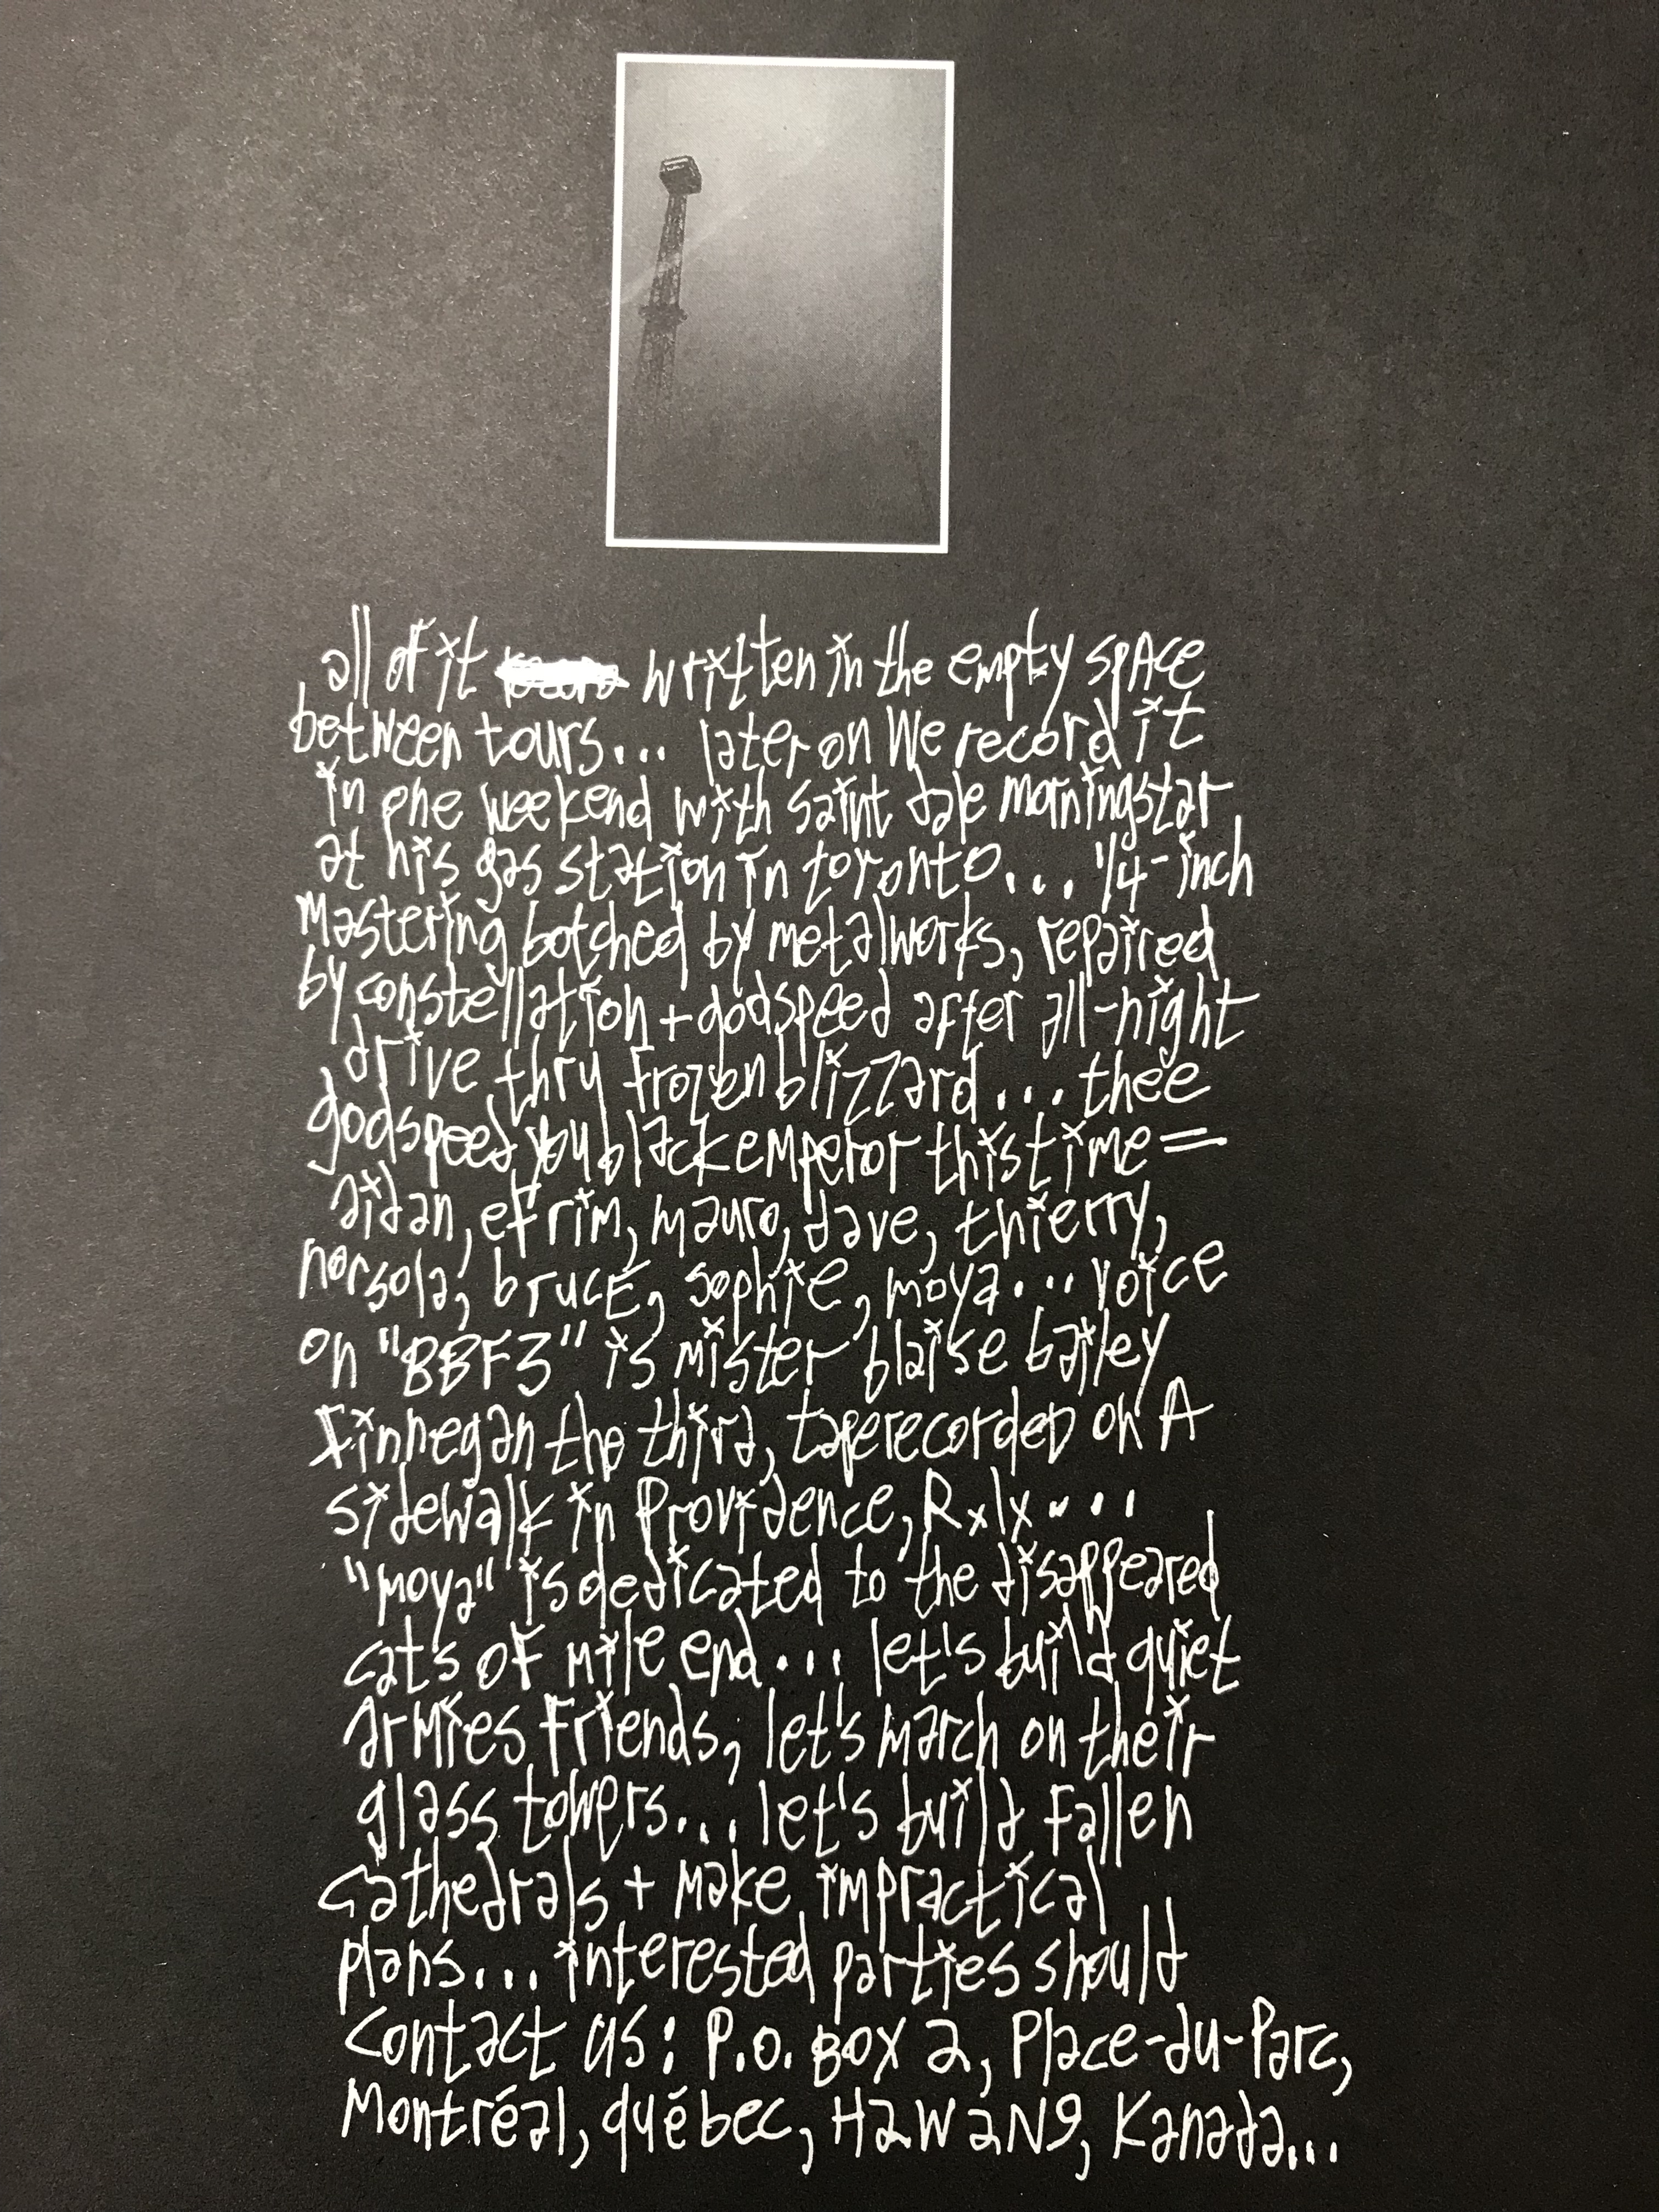 all of it written in the empty space
between tours... later on We record it
in one weekend with saint dale morningstar
at his gas station in toronto... 1/4-inch
Mastering botched by metalworks, repaired
by constellation + godspeed after all-night
drive thru frozen blizzard... thee
godspeed you black emperor this time =
aidan, efrim, mauro, dave, thierry,
norsola, brucE, sophie, moya... voice
on "BBF3" is mister blaise bailey
finnegan the third, taperecordeD on A
sidewalk in Providence, RxIx....
"moya" is dedicated to the disappeared
cats of mile end... let's build quiet
armies friends, let's march on their
glass towers... let's build fallen
cathedrals + make impractical
plans... interested parties should
contact us: P.O. BOX 2, Place-du-Parc,
Montréal, québec, H2W 2N9, Kanada...